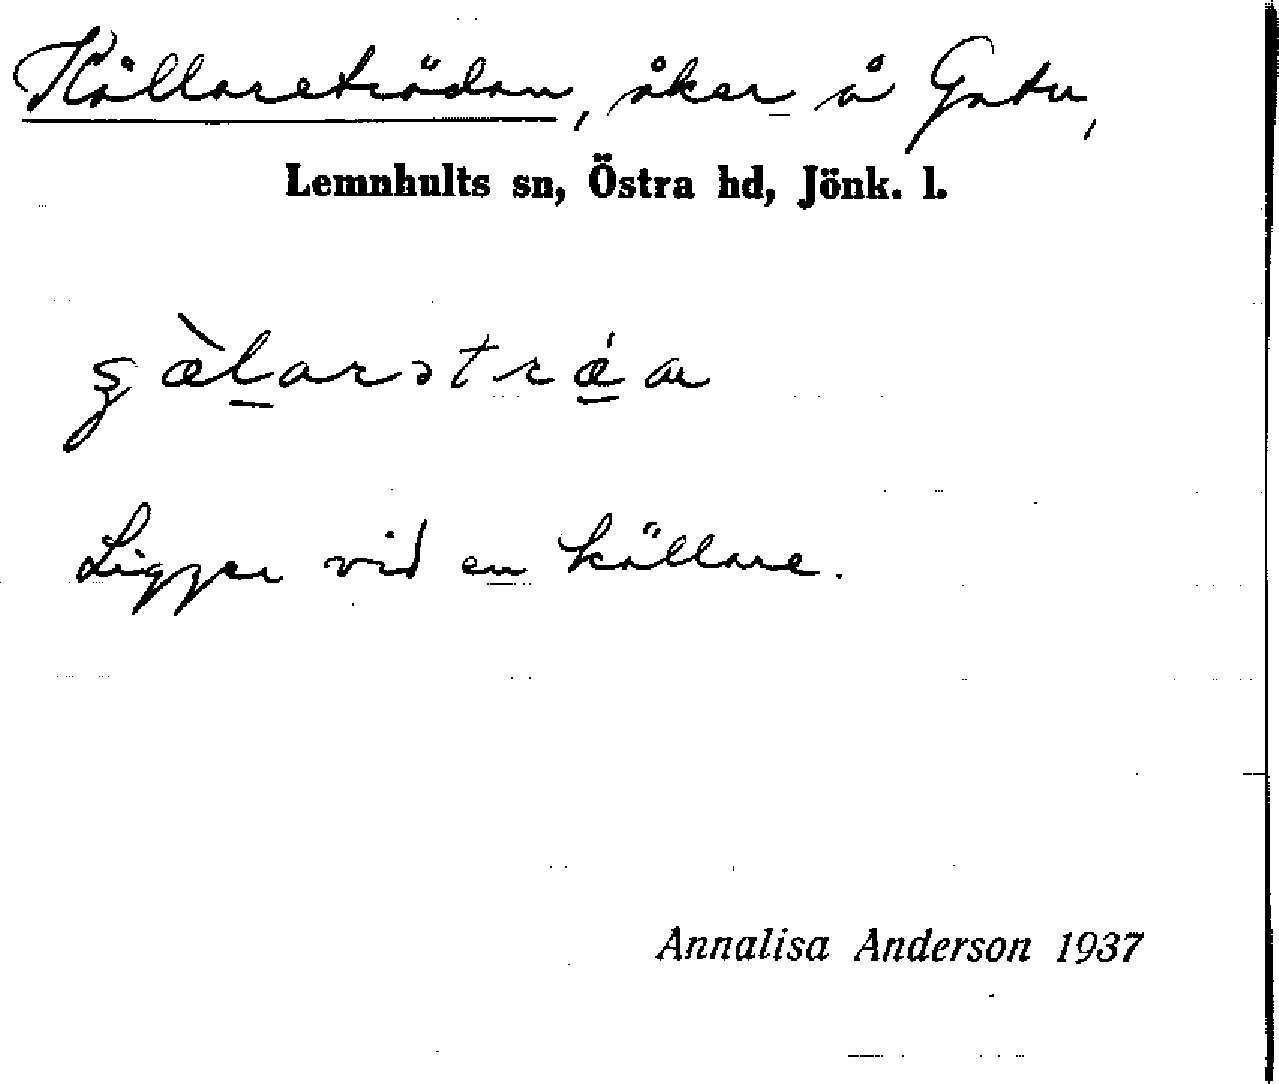 Källareträdan, åker å Gatu,
Lemnhults sn, Östra hd, Jönk. l.
Ligger vid en källare.
Annalisa Anderson 1937